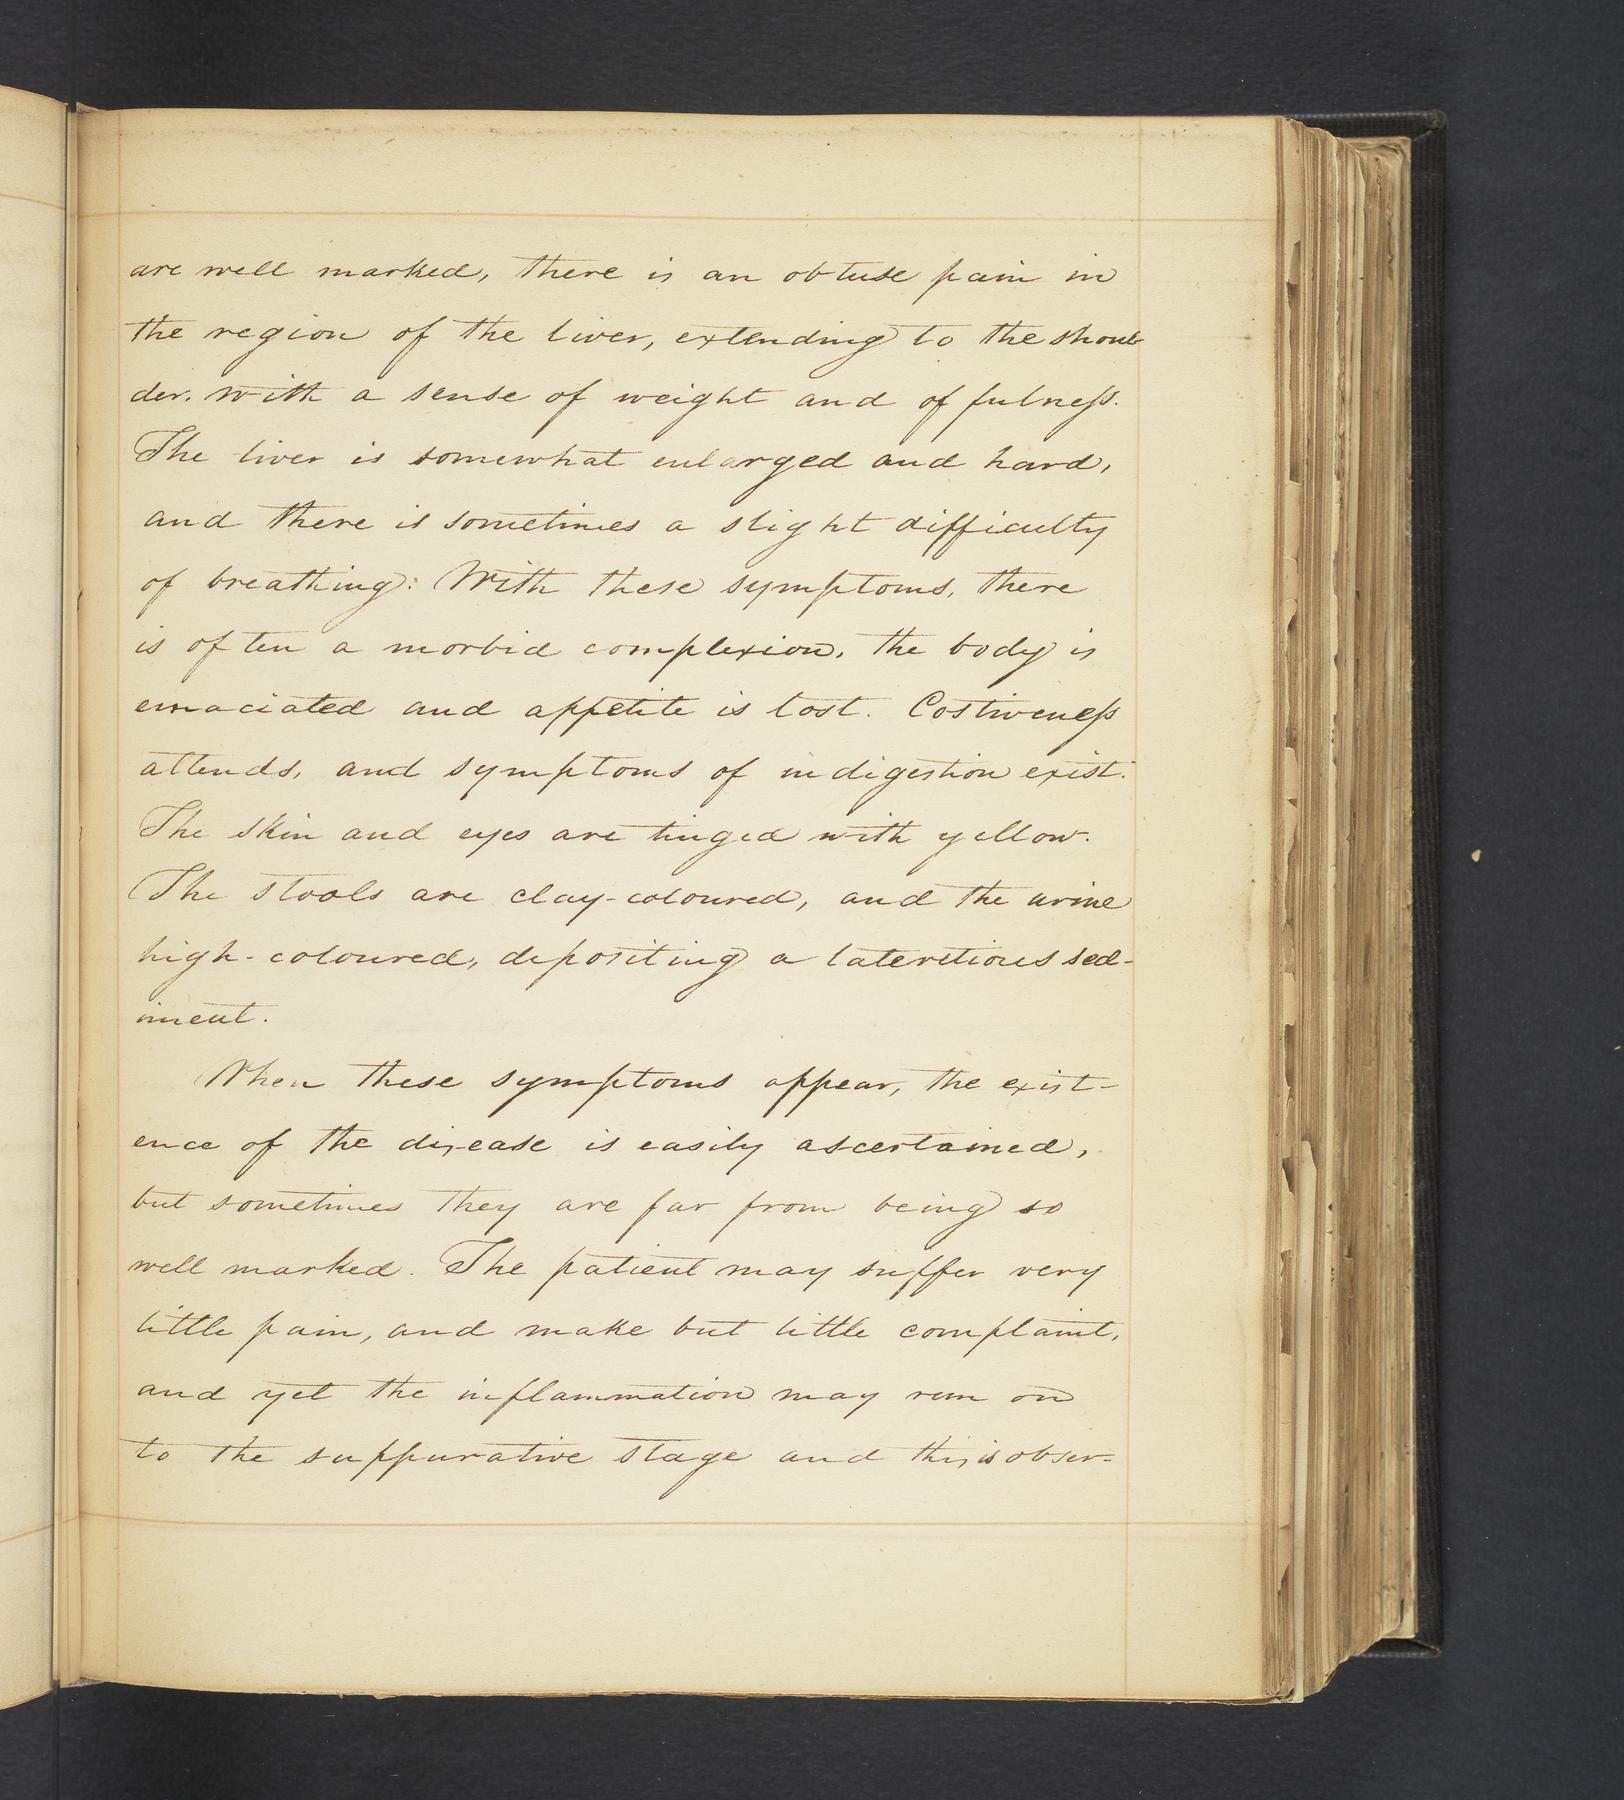 are well marked, there is an obtuse pain in
the region of the liver, extending to the shoul-
der. with a sense of weight and of fulness.
The liver is somewhat enlarged and hard,
and there is sometimes a slight difficulty
of breathing: With these symptoms, there
is often a morbid complexion, the body is
emaciated and appetite is lost. Costiveness
attends, and symptoms of indigestion exist.
The skin and eyes are tinged with yellow.
The stools are clay-coloured, and the urine
high-coloured, depositing a lateritious sed-
iment.
When these symptoms appear, the exist-
ence of the disease is easily ascertained,
but sometimes they are far from being so
well marked. The patient may suffer very
little pain, and make but little complaint,
and yet the inflammation may run on
to the suppurative stage and this is obser-